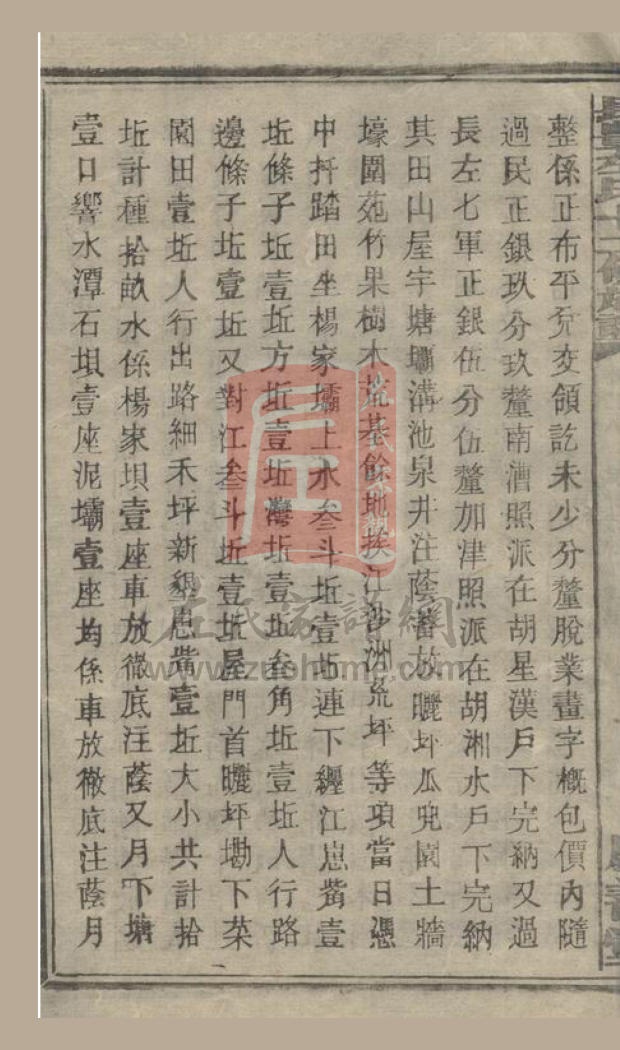 整係正布平兌交領訖未少分釐脫業畫字概包價內隨
過民正銀玖分玖釐南漕照派在胡星漢戶下完納又過
長左七軍正銀伍分伍釐加津照派在胡湘水戶下完納
其田山屋宇塘壩溝池泉井注蔭蓄放曬坪瓜兜園土牆
壕圍苑竹果樹木 基餘地挨江沙洲荒坪等項當日憑
中扦踏田坐楊家壩上水叁斗坵壹坵連下纏江崽觜壹
坵條子坵壹坵方坵壹坵灣坵壹坵叁角坵壹坵人行路
邊條子坵壹坵又對江叁斗坵壹坵屋門首曬坪塝下菜
園田壹坵人行出路細禾坪新墾崽觜壹坵大小共計拾
坵計種拾畝水係楊家坝壹座車放徹底注蔭又月下塘
壹口響水潭石坝壹座泥壩壹座均係車放徹底注蔭月
左氏家譜網
www.zuohome.com